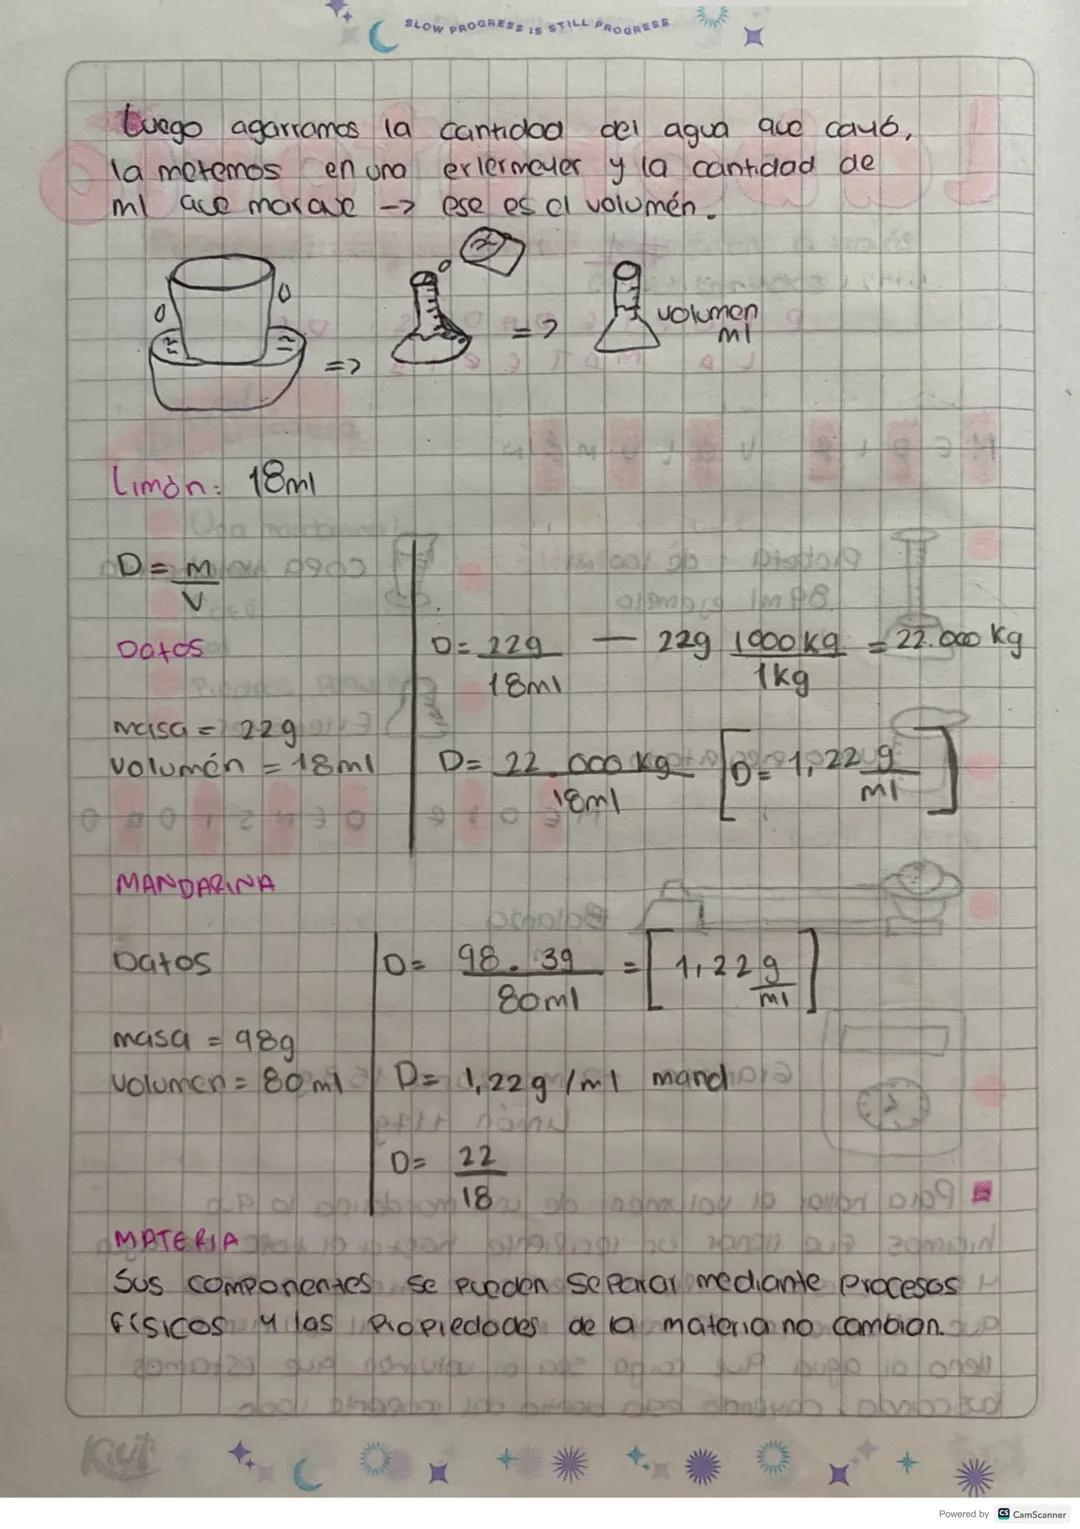 SLOW PROGRESS IS STILL PROGRESS
Luego agarramos la cantidad del agua que cayó,
la metemos en una erlermeyer y la cantidad de
ml que marque -> ese es el volumén.
=>
=>
volumen
ml
Limón: 18ml
D= m
V
Datos
masa = 22g
volumén = 18ml
D= 22g — 22g 1000kg = 22.000 kg
18ml 1kg
D= 22.000 kg [D= 1,22 g
18ml ml]
MANDARINA
Datos
masa = 98g
volumen = 80 ml
D= 98.39 = [1,22 g
80ml ml]
D= 1,22g /ml mand
D= 22
18
MATERIA
Sus componentes se pueden separar mediante procesos
físicos y las propiedades de la materia no cambian.
Kiut
Powered by CS CamScanner